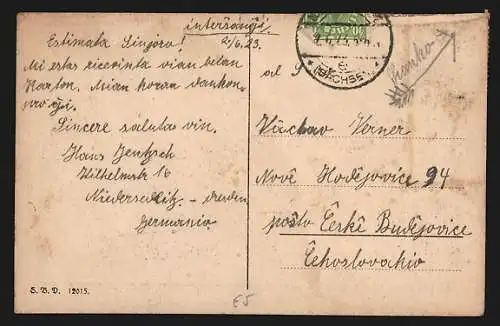 interŝanĝi
21/6.23.
Estimata Sinjoro!
Mi estas ricevinta vian belan
Karton. Mian koran dankon
pro ĝi.
Sincere salutas vin.
Hans Jentzsch
Wilhelmstr 16
Niedersedlitz - Dresden
Germanio
S. B. D. 12015.
(SACHSEN)
al S
Václav Verner
Nové Hodějovice 94
poŝto České Budějovice
Ĉehoslovakio